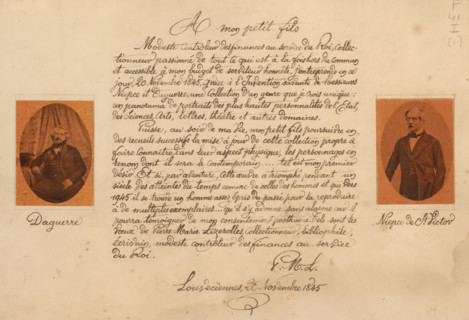 A mon petit fils
Modeste contrôleur des finances au service du Roi, collec-
tionneur passionné de tout ce qui est à la fois hors du commun
et accessible à mon budget de serviteur honnête, j'entreprends en ce
jour 20 Novembre 1845, grâce à l'Invention de Messieurs
Niepce et Daguerre, une Collection d'un genre que je crois unique:
un panorama de portraits des plus hautes personnalités de l'Etat,
des Sciences, Arts, Lettres, Théâtre et autres domaines.
Puisse, au soir de ma vie, mon petit fils poursuivre en
des recueils successifs la mise à jour de cette collection propre à
faire connaître dans leur aspect physique, les personnages en
renom dont il sera le contemporain... tel est mon premier
désir. Et si, par aventure, cette œuvre a triomphé pendant un
siècle des atteintes du temps comme de celles des hommes et que vers
1945 il se trouve un homme assez épris du passé pour la reproduire
à de multiples exemplaires... qu'il s'y adonne sans alarme car il
pourra témoigner de mon consentement posthume: tels sont les
vœux de Pierre Marie Lizerolles Collectionneur, bibliophile,
écrivain, modeste contrôleur des finances au service
du Roi.
P. M. L.
Louveciennes, Novembre 1845
Daguerre
Niepce de St Victor